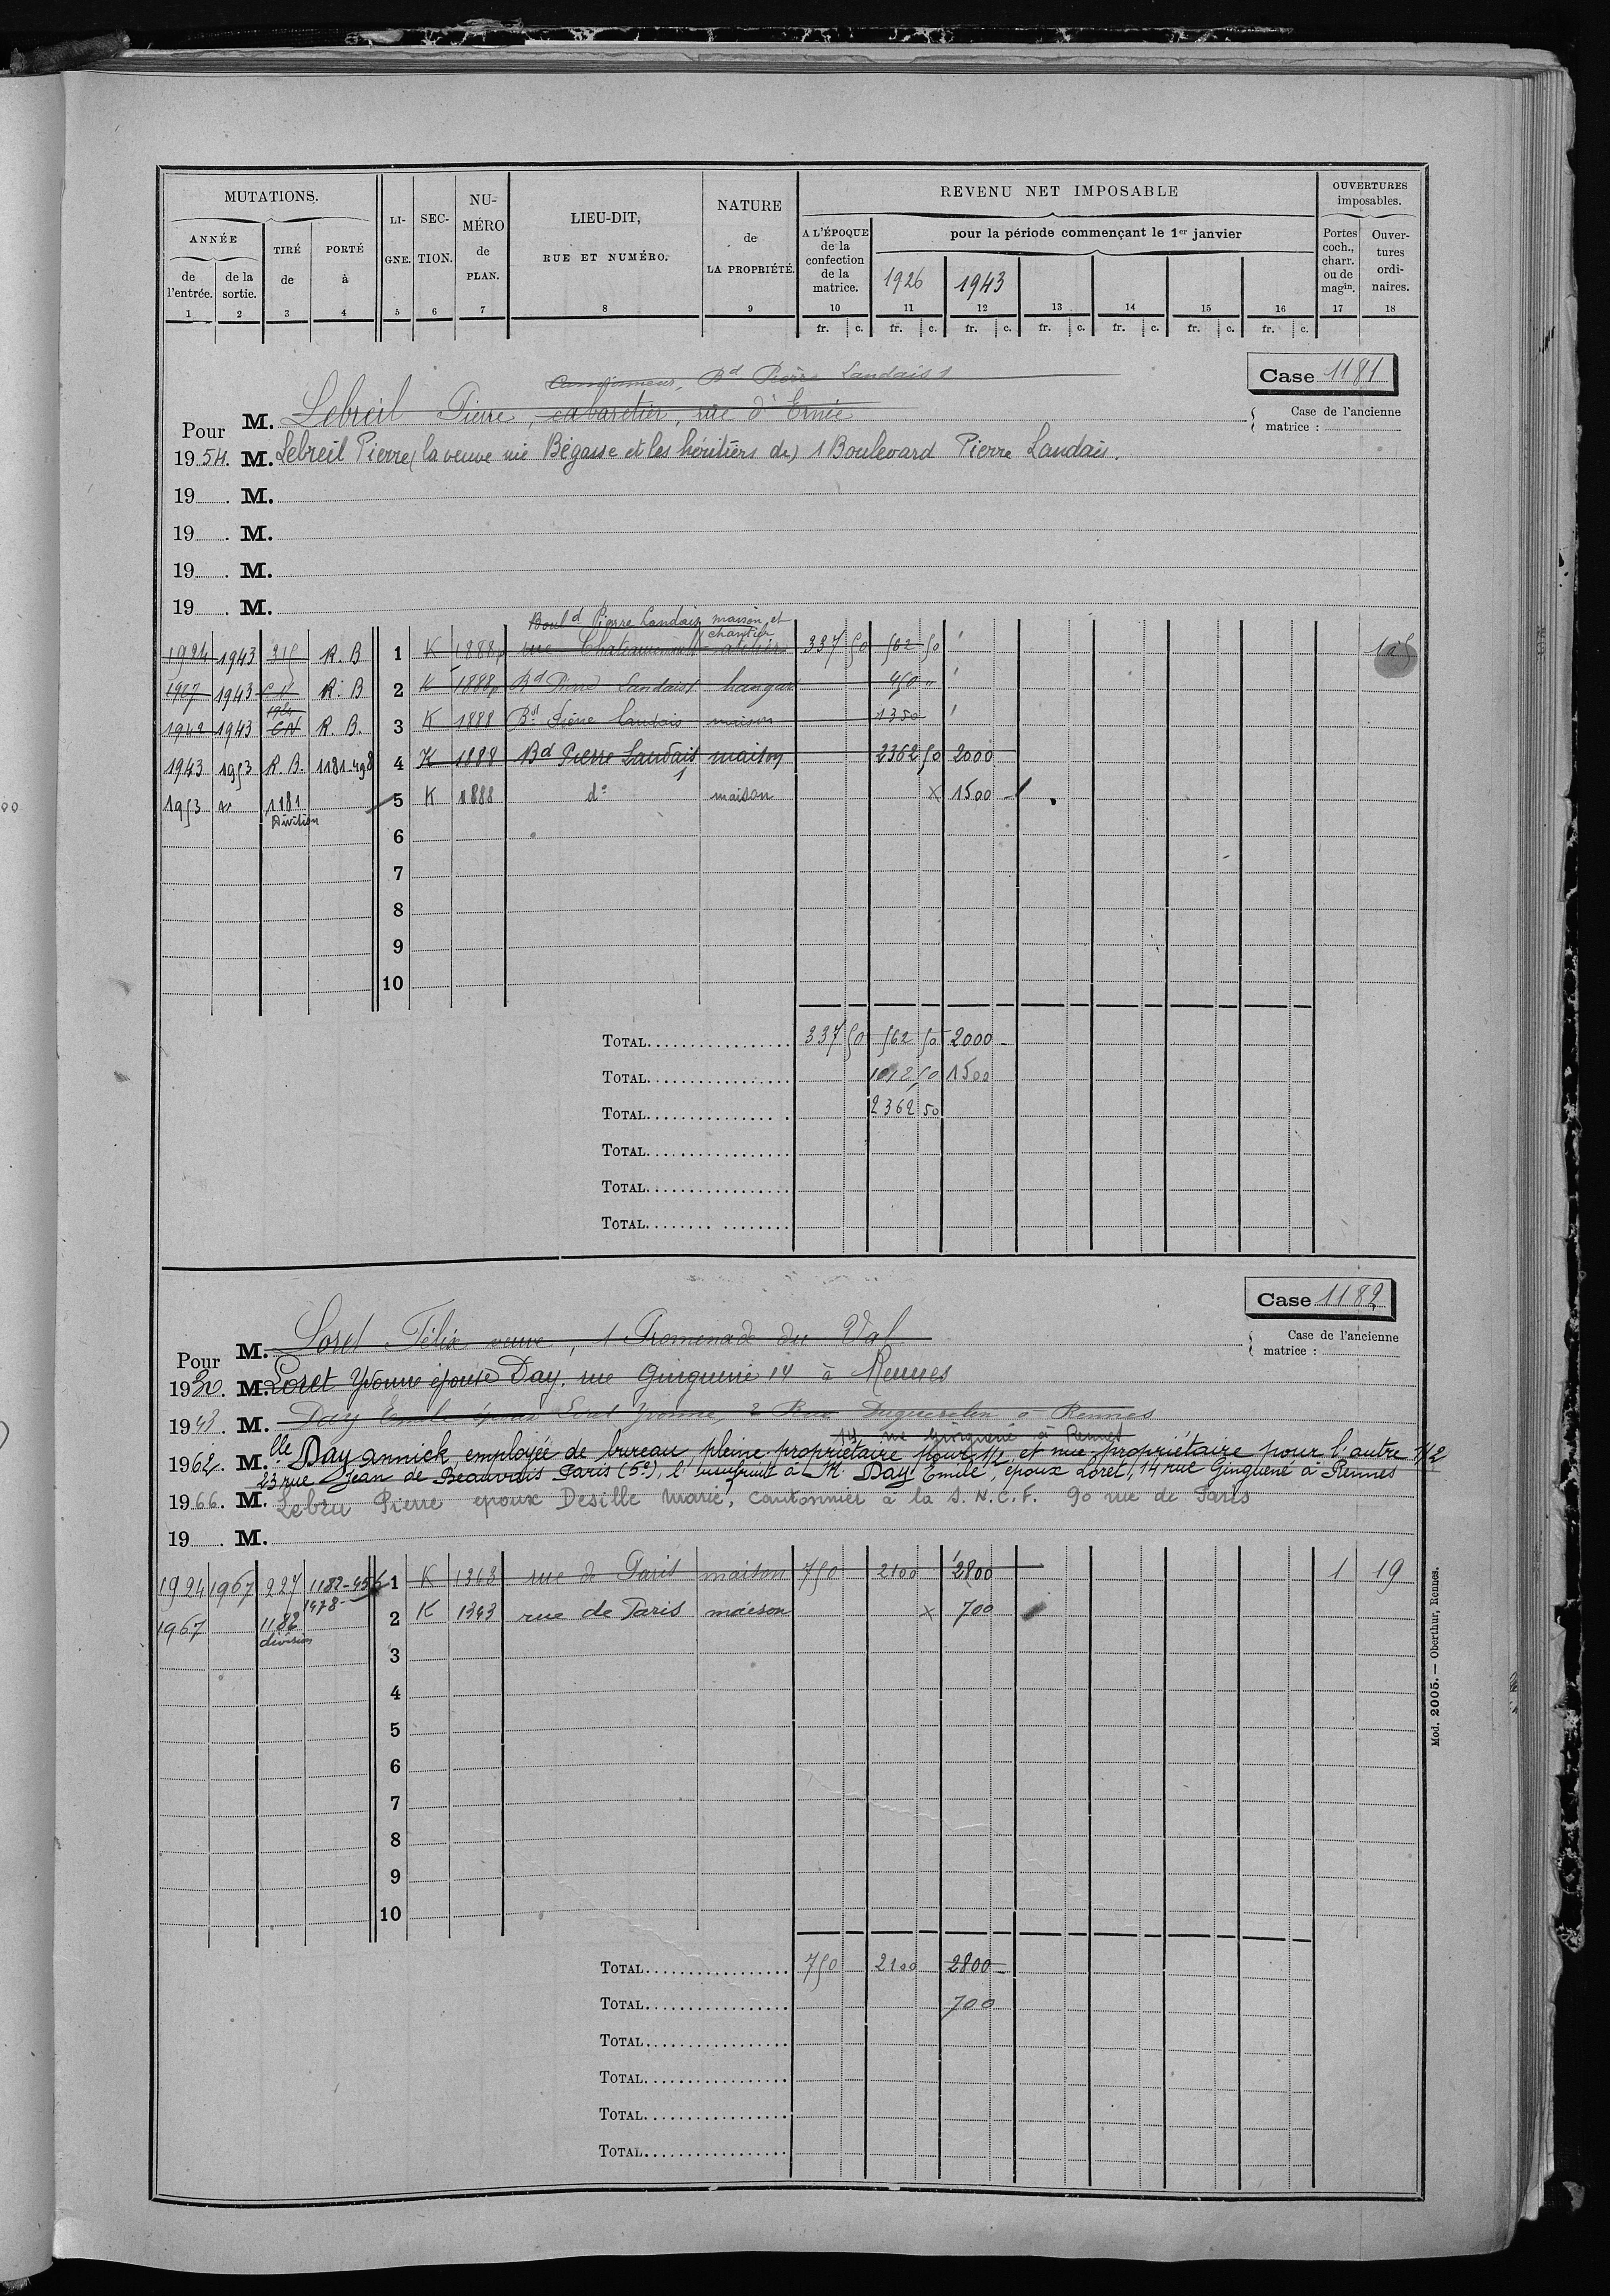 MUTATIONS.
ANNÉE
de l'entrée.
de la sortie.
TIRÉ de
PORTÉ à
LI-GNE.
SEC-TION.
NU-MÉRO de PLAN.
LIEU-DIT,
RUE ET NUMÉRO.
NATURE de LA PROPRIÉTÉ.
REVENU NET IMPOSABLE
A L'ÉPOQUE de la confection de la matrice.
pour la période commençant le 1er janvier
1926 1943
OUVERTURES imposables.
Portes coch., charr. ou de magin.
Ouver-tures ordi-naires.
1 2 3 4 5 6 7 8 9 10 11 12 13 14 15 16 17 18
fr. c. fr. c. fr. c. fr. c. fr. c. fr. c. fr. c.
Case 1181
Bd Pierre Landais 1
Pour M. Lebreil Pierre, cabaretier, rue d'Ernée
Case de l'ancienne matrice :
1954. M. Lebreil Pierre (la veuve née Bégasse et les héritiers de) 1 Boulevard Pierre Landais.
19 . M.
19 . M.
19 . M.
19 . M.
Bould Pierre Landais maison et chantier
1924 1943 315 R. B 1 K 1888p rue Chateaubriand ateliers 337 50 562 50 1 à 5
1927 1943 C.N R. B 2 K 1888p Bd Pierre Landais 1 hangar 450 "
1942 1943 CN R. B. 3 K 1888 Bd Pierre Landais maison 1350
1943 1953 R. B. 1181-498 4 K 1888 Bd Pierre Landais 1 maison 2362 50 2000
1953 1181 Division 5 K 1888 do maison x 1500
6
7
8
9
10
TOTAL 337 50 562 50 2000
TOTAL 1012 50 1500
TOTAL 2362 50
TOTAL
TOTAL
TOTAL
Case 1182
Pour M. Loret Félix veuve, 1 Promenade du Val
Case de l'ancienne matrice :
1930. M. Loret Yvonne épouse Day, rue Guinguené 14 à Rennes
1943. M. Day Emile époux Loret Yvonne, 2 Rue Duguesclin à Rennes
14 rue Guinguené à Rennes
1962. M. lle Day Annick, employée de bureau, pleine propriétaire pour 1/2 et nue-propriétaire pour l'autre 1/2
23 rue Jean de Beauvais Paris (5e), l'usufruit à M. Day Emile, époux Loret, 14 rue Ginguené à Rennes
1966. M. Lebru Pierre époux Desille Marie, cantonnier à la S.N.C.F. 90 rue de Paris
19 M.
1924 1967 227 1182-456 1478 1 K 1363 rue de Paris maison 750 2100 2800 1 19
1967 1182 division 2 K 1343 rue de Paris maison x 700
3
4
5
6
7
8
9
10
TOTAL 750 2100 2800
TOTAL 700
TOTAL
TOTAL
TOTAL
TOTAL
Mod. 2005. — Oberthur, Rennes.